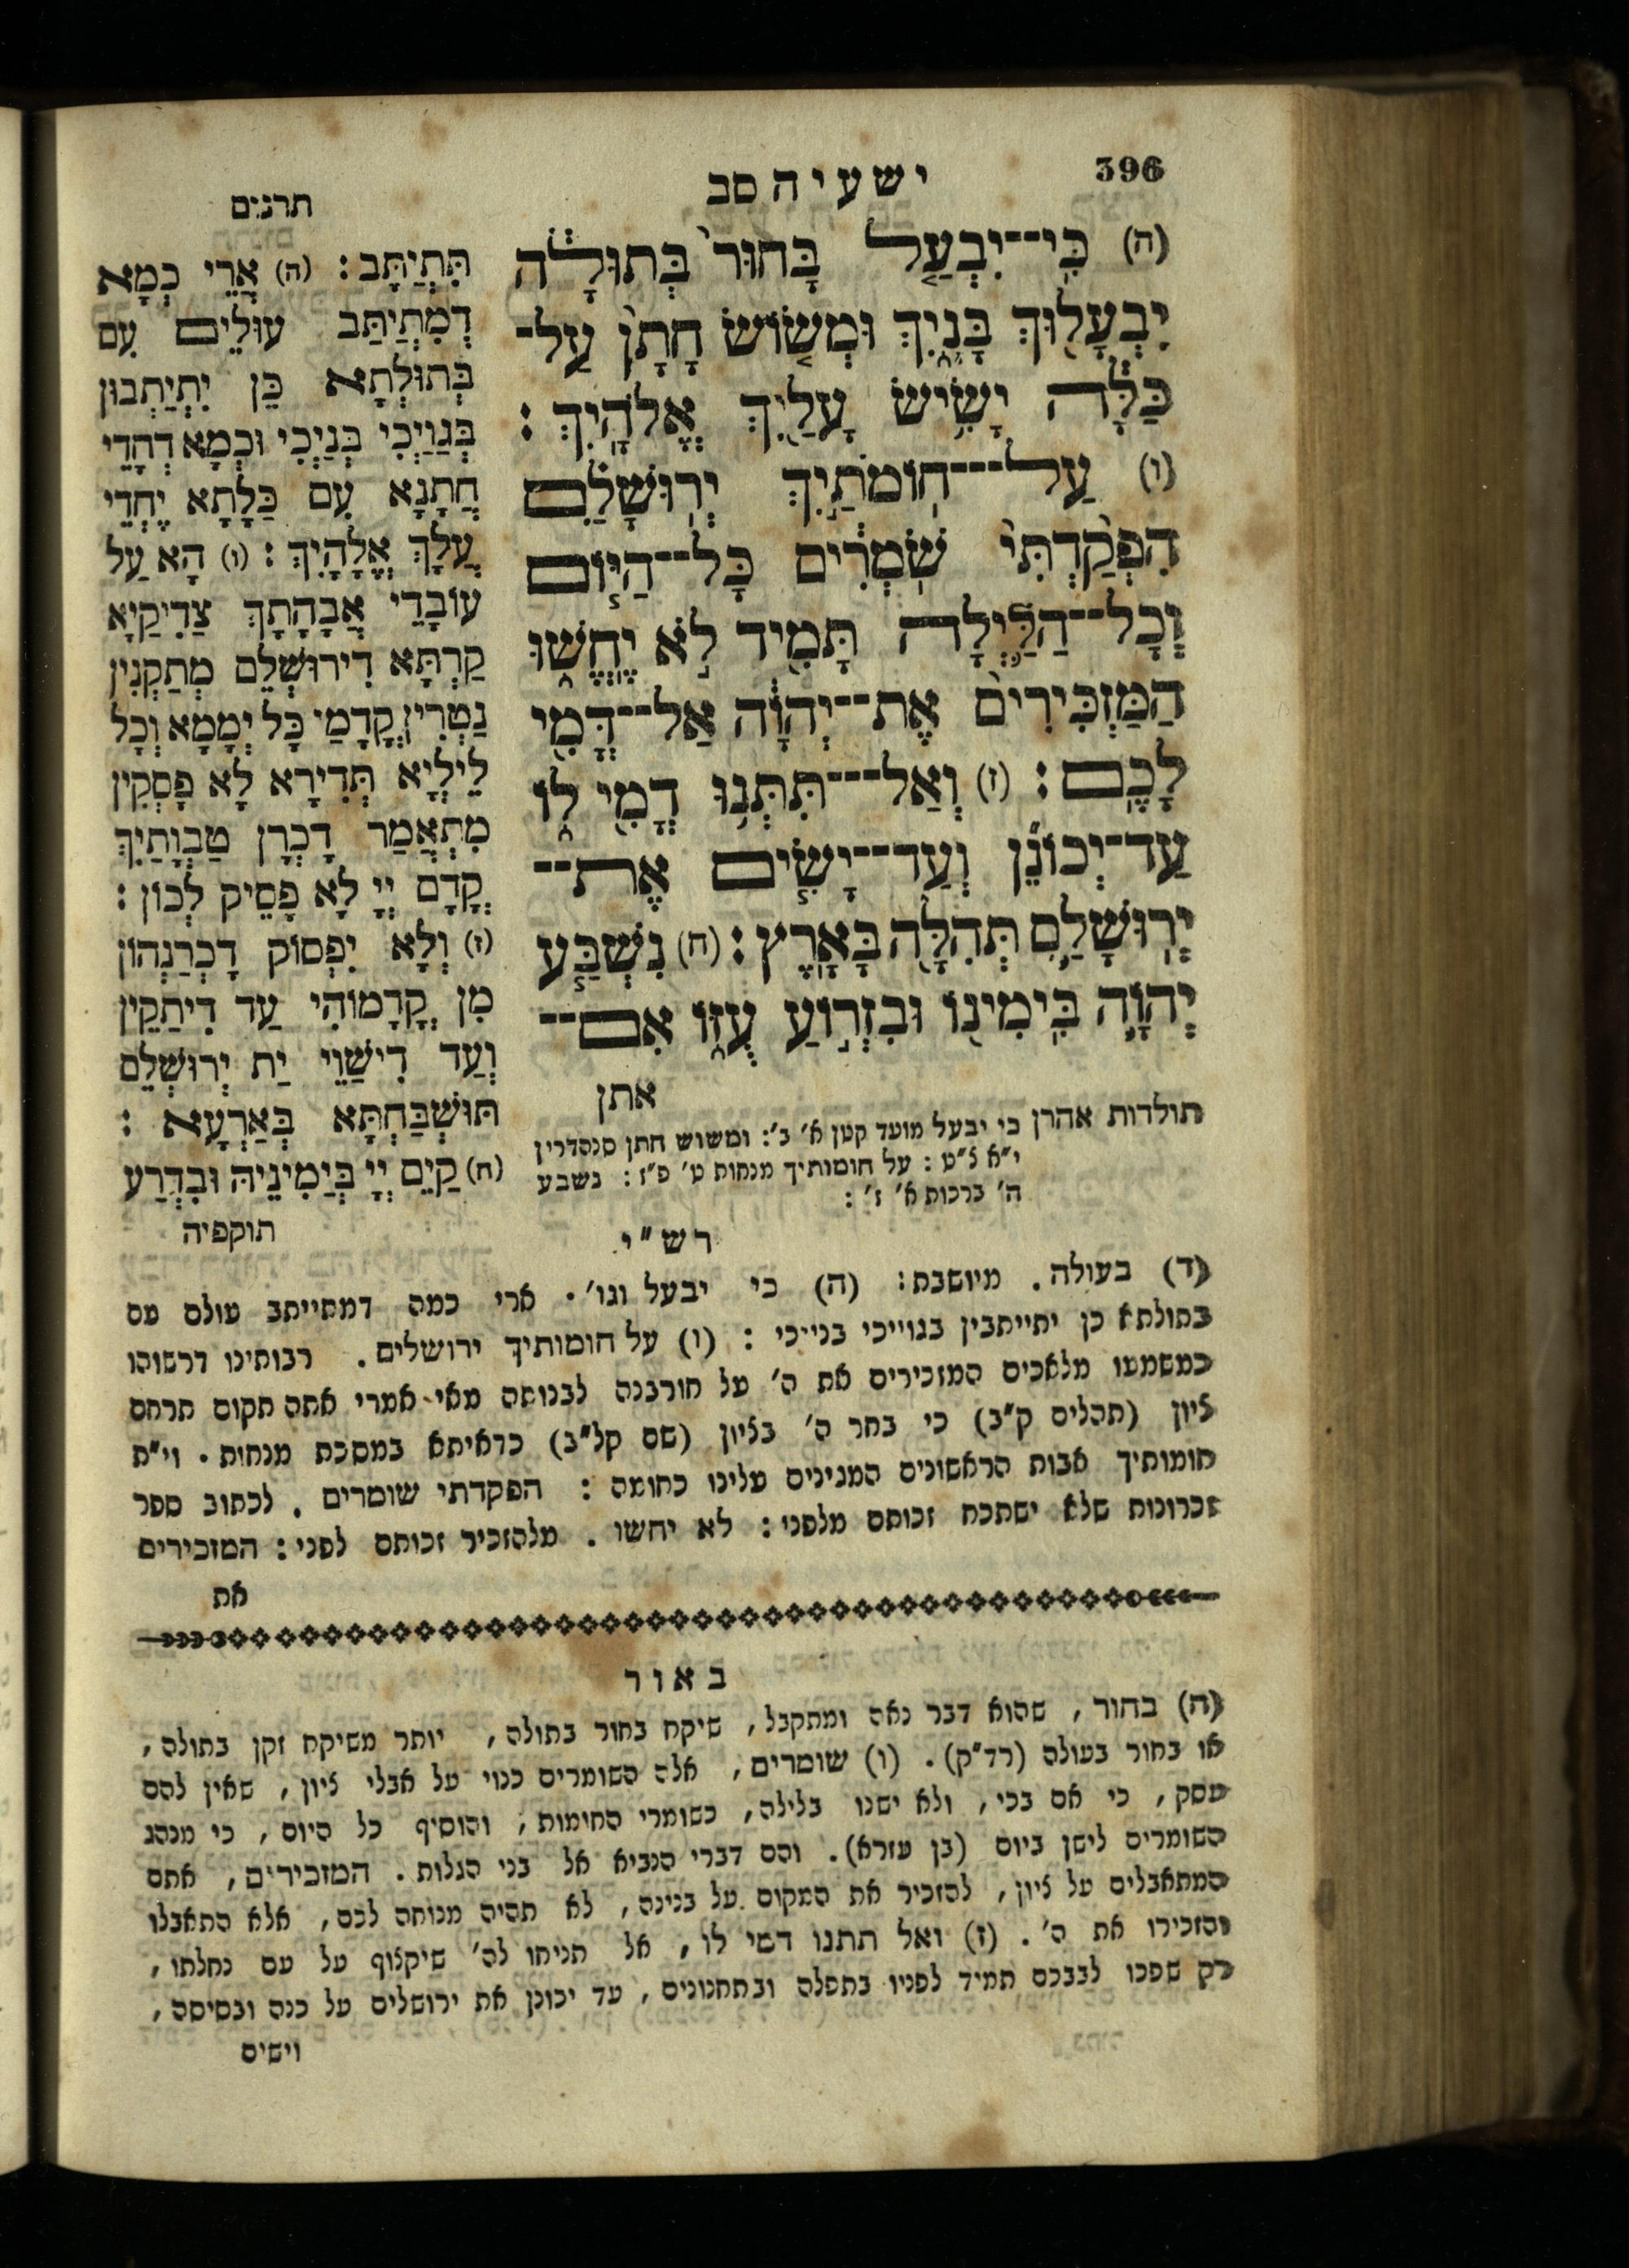 396
ישעיה סב
(ה) כִּֽי־־יִבְעַ֤ל בָּחוּר֙ בְּתוּלָ֔ה
יִבְעָל֖וּךְ בָּנָ֑יִךְ וּמְשׂ֤וֹשׂ חָתָן֙ עַל־
כַּלָּ֔ה יָשִׂ֥ישׂ עָלַ֖יִךְ אֱלֹהָֽיִךְ׃
(ו) עַל־־־חוֹמֹתַ֣יִךְ יְרוּשָׁלִַ֗ם
הִפְקַ֙דְתִּי֙ שֹֽׁמְרִ֔ים כָּל־־הַיּ֧וֹם
וְכָל־־הַלַּ֛יְלָה תָּמִ֖יד לֹ֣א יֶחֱשׁ֑וּ
הַמַּזְכִּירִים֙ אֶת־־יְהוָֹ֔ה אַל־־דֳּמִ֖י
לָכֶֽם׃ (ז) וְאַל־־־תִּתְּנ֥וּ דֳמִ֖י ל֑וֹ
עַד־יְכוֹנֵ֞ן וְעַד־־יָשִׂ֧ים אֶת־־
יְרֽוּשָׁלִַ֛ם תְּהִלָּ֖ה בָּאָֽרֶץ׃ (ח) נִשְׁבַּ֧ע
יְהוָֹ֛ה בִּֽימִינ֖וֹ וּבִזְר֣וֹעַ עֻזּ֑וֹ אִם־־
אתן
תרגום
תִּתְיַתָּב׃ (ה) אֲרֵי כְמָא
דְמִתְיַתַּב עוּלֵים עִם
בְּתוּלְתָא כֵּן יִתְיַתְבוּן
בְּגַוַיְכִי בְּנַיְכִי וּכְמָא דְחָדֵי
חַתְנָא עִם כַּלָתָא יֶחְדֵי
עֲלָךְ אֱלָהָיִךְ׃ (ו) הָא עַל
עוֹבָדֵי אֲבָהָתָךְ צַדִיקַיָא
קַרְתָּא דִירוּשְׁלֵם מְתַקְנִין
נַטְרִין קֳדָמַי כָּל יְמָמָא וְכָל
לֵילְיָא תְּדִירָא לָא פָסְקִין
מִתְאֲמַר דָכְרָן טַבְוָתַיִךְ
קֳדָם יְיָ לָא פָסֵיק לְכוֹן׃
(ז) וְלָא יִפְסוֹק דָכְרַנְהוֹן
מִן קֳדָמוֹהִי עַד דִיתַקֵין
וְעַד דִישַׁוֵי יַת יְרוּשְׁלֵם
תּוּשְׁבַּחְתָּא בְּאַרְעָא׃
(ח) קַיֵם יְיָ בִּימִינֵיהּ וּבִדְרַע
תוקפיה
תולדות אהרן כי יבעל מועד קטן א׳ ב׳: ומשוש חתן סנהדרין
י״א צ״ט: על חומותיך מנחות ט׳ פ״ז: נשבע
ה׳ ברכות א׳ ז׳:
רש״י
(ד) בעולה. מיושבת: (ה) כי יבעל וגו׳. ארי כמה דמתייתב עולם עם
בתולתא כן יתייתבין בגוייכי בנייכי: (ו) על חומותיך ירושלים. רבותינו דרשוהו
כמשמעו מלאכים המזכירים את ה׳ על חורבנה לבנותה מאי אמרי אתה תקום תרחם
ציון (תהלים ק״ב) כי בחר ה׳ בציון (שם קל״ב) כדאיתא במסכת מנחות. וי״ת
חומותיך אבות הראשונים המגינים עלינו כחומה: הפקדתי שומרים. לכתוב ספר
זכרונות שלא ישתכח זכותם מלפני: לא יחשו. מלהזכיר זכותם לפני: המזכירים
את
באור
(ה) בחור, שהוא דבר נאה ומתקבל, שיקח בחור בתולה, יותר משיקח זקן בתולה,
או בחור בעולה (רד״ק). (ו) שומרים, אלה השומרים כנוי על אבלי ציון, שאין להם
עסק, כי אם בכי, ולא ישנו בלילה, כשומרי החימות, והוסיף כל היום, כי מנהג
השומרים לישן ביום (בן עזרא). והם דברי הנביא אל בני הגלות. המזכירים, אתם
המתאבלים על ציון, להזכיר את המקום על בנינה, לא תהיה מנוחה לכם, אלא התאבלו
והזכירו את ה׳. (ז) ואל תתנו דמי לו, אל תניחו לה׳ שיקצוף על עם נחלתו,
רק שפכו לבבכם תמיד לפניו בתפלה ובתחנונים, עד יכונן את ירושלים על כנה ובסיסה,
וישים